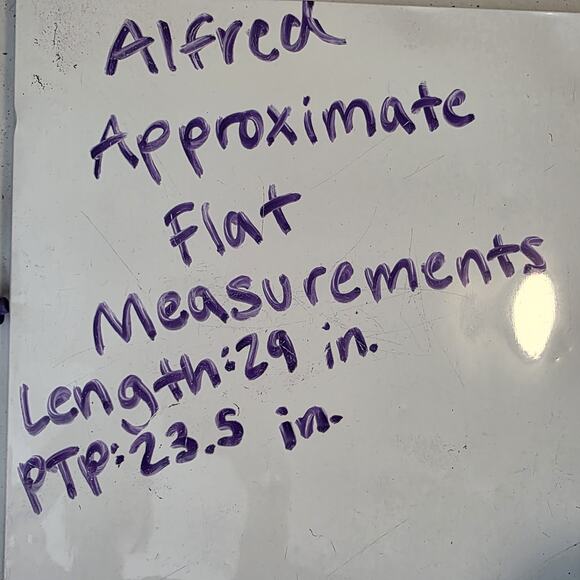 Alfred
Approximate
Flat
Measurements
Length:29 in.
PTP:23.5 in.